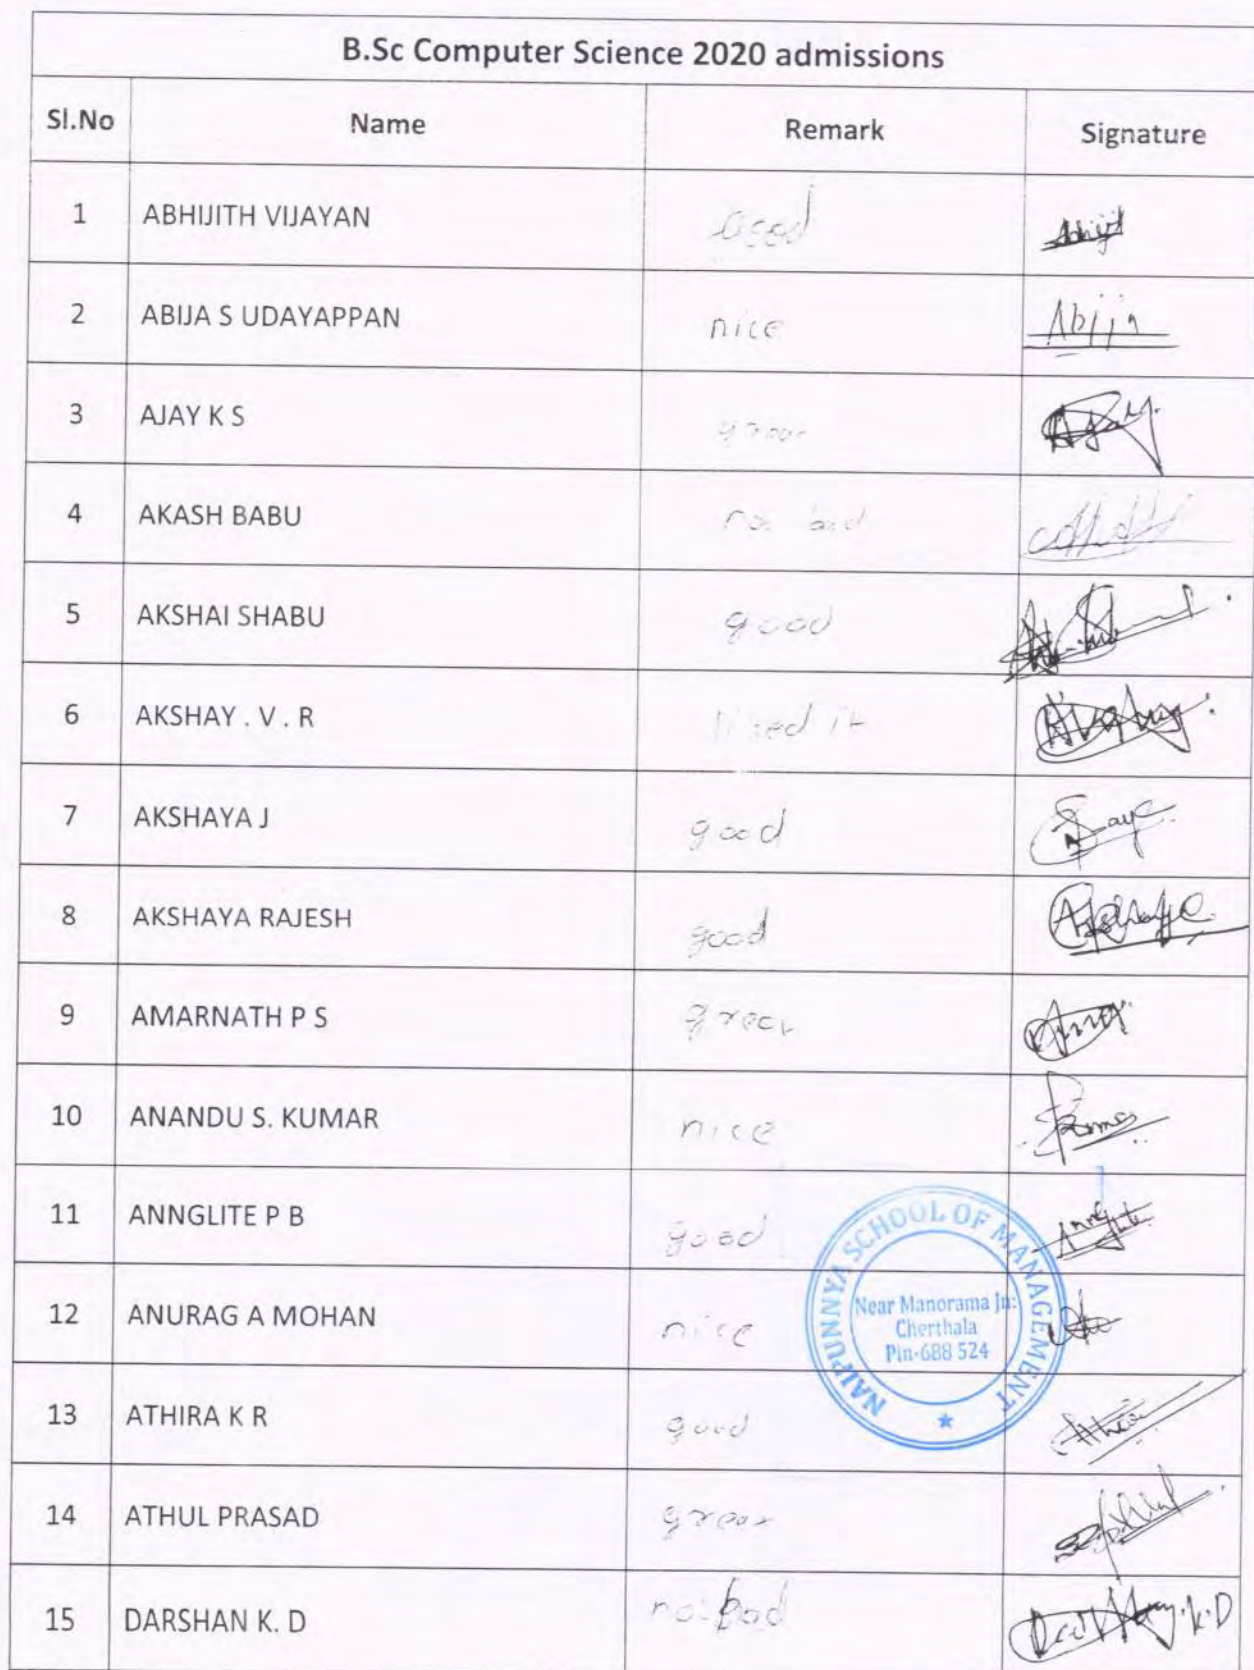 B.Sc Computer Science 2020 admissions
Sl.No Name Remark Signature
1 ABHIJITH VIJAYAN Good Abhijit
2 ABIJA S UDAYAPPAN nice Abija
3 AJAY K S great
4 AKASH BABU not bad
5 AKSHAI SHABU good
6 AKSHAY . V . R liked it
7 AKSHAYA J good
8 AKSHAYA RAJESH good
9 AMARNATH P S great
10 ANANDU S. KUMAR nice
11 ANNGLITE P B good
12 ANURAG A MOHAN nice
13 ATHIRA K R good
14 ATHUL PRASAD great
15 DARSHAN K. D not bad
NAIPUNNYA SCHOOL OF MANAGEMENT
Near Manorama Jn:
Cherthala
Pin-688 524